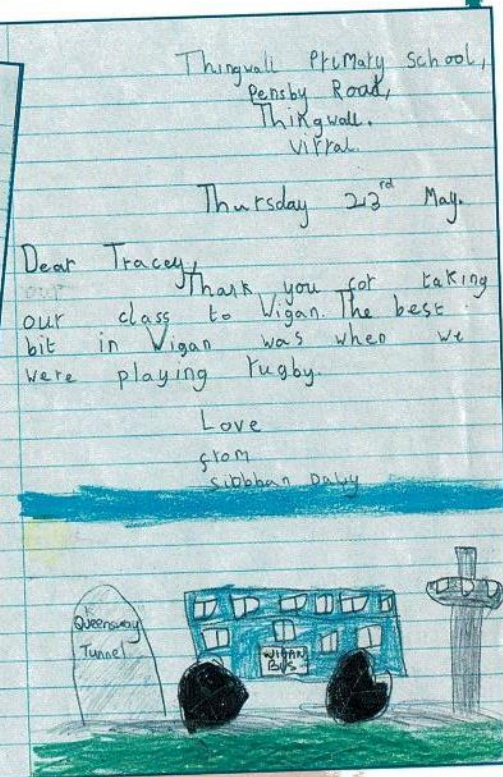 Thingwall Primary School,
Pensby Road,
Thingwall.
Wirral.
Thursday 23rd May.
Dear Tracey,
Thank you for taking
our class to Wigan. The best
bit in Wigan was when we
were playing rugby.
Love
from
Siobhan Daly
Queensway
Tunnel
WIGAN
BUS